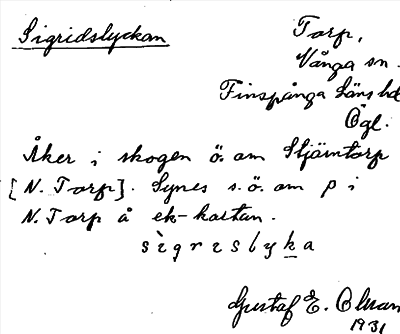 Sigridslyckan
Torp,
Vånga sn.
Finspånga läns hd
Ögl.
Åker i skogen ö. om Stjärntorp
[N. Torp]. Synes s.ö. om p i
N. Torp å ek-kartan.
Gustaf E. Olman
1931